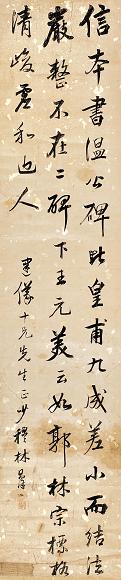 信本書溫公碑比皇甫九成差小而結法
嚴整不在二碑下王元美云如郭林宗標格
清峻虛和近人
建侯十兄先生正 少穆林則徐